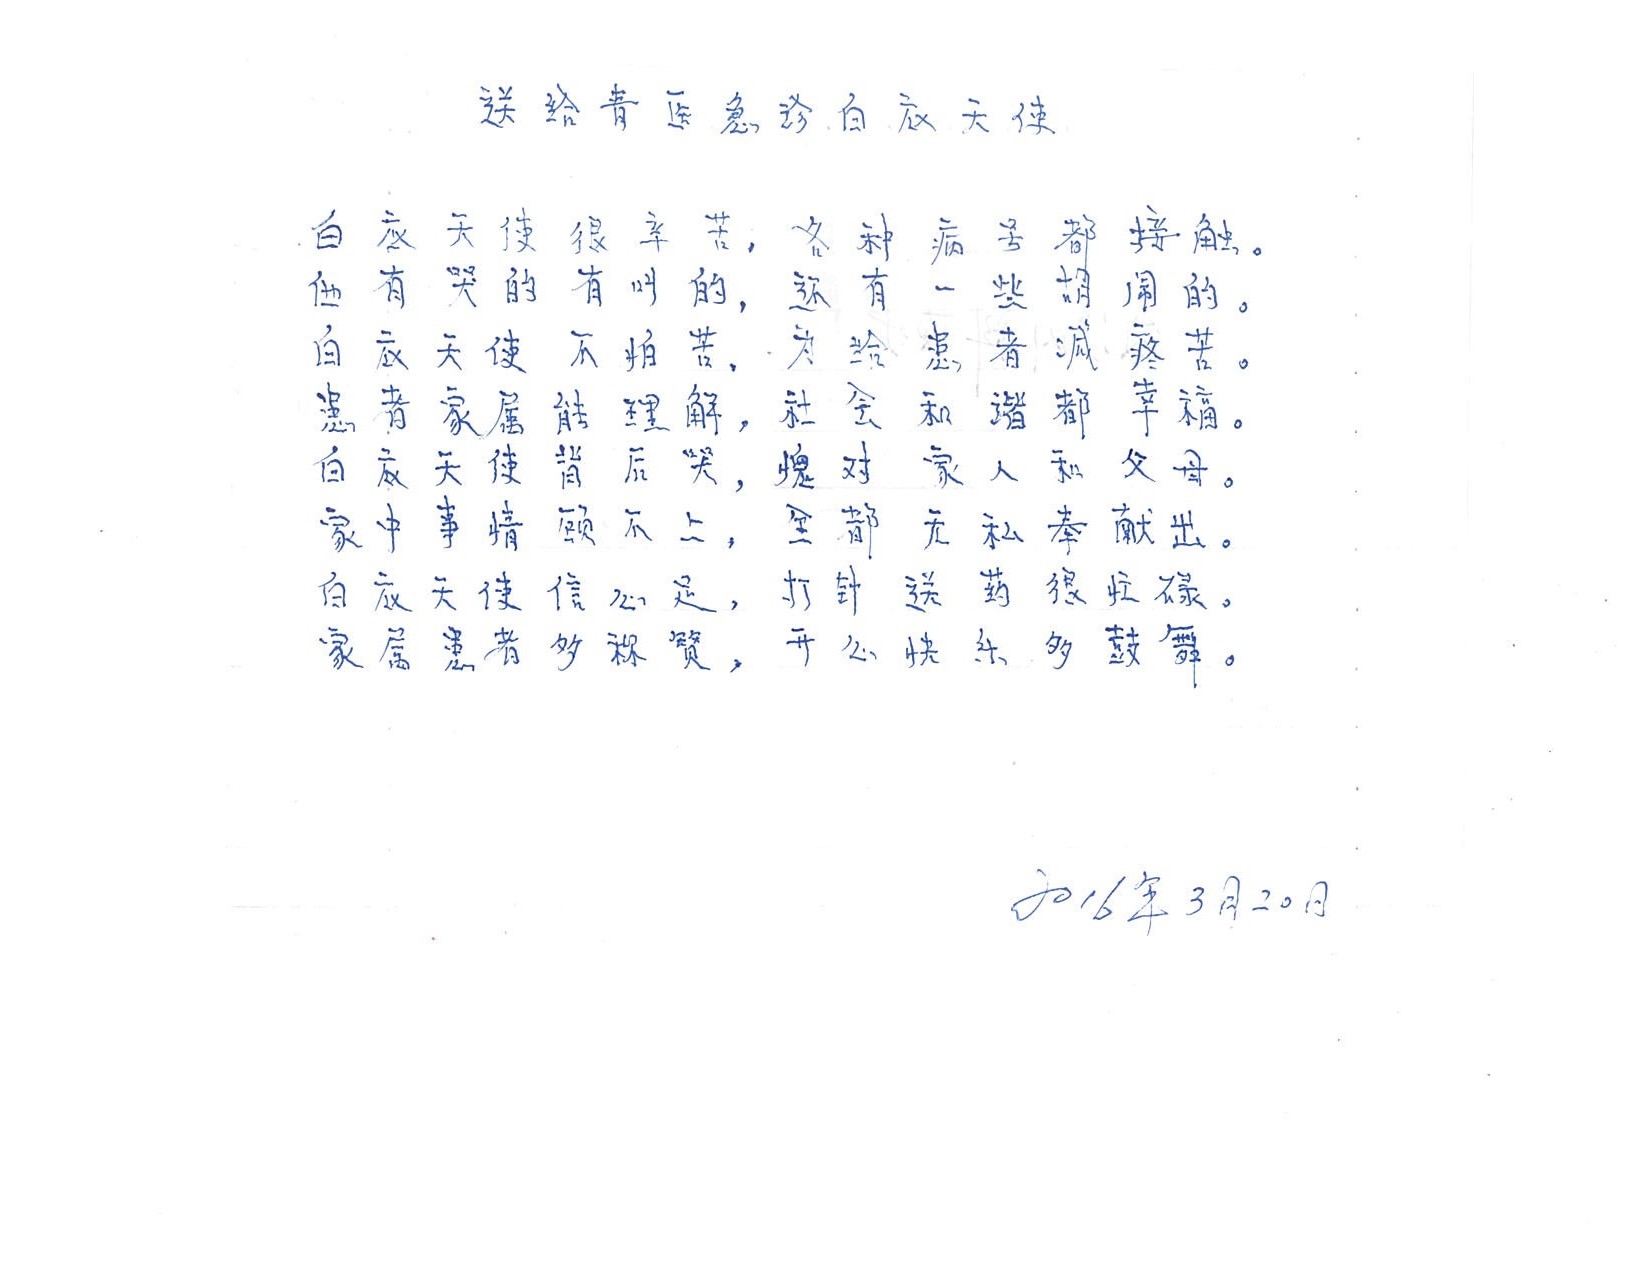 送给青医急诊白衣天使
白衣天使很辛苦，各种病号都接触。
他有哭的有叫的，还有一些胡闹的。
白衣天使不怕苦，为给患者减疼苦。
患者家属能理解，社会和谐都幸福。
白衣天使背后哭，愧对家人和父母。
家中事情顾不上，全都无私奉献出。
白衣天使信心足，打针送药很忙碌。
家属患者多称赞，开心快乐多鼓舞。
2016年3月20日